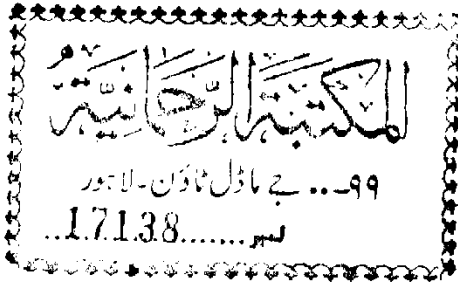 المكتبة الرحمانية
۹۹-.. جے ماڈل ٹاؤن-لاہور
نمبر.......17138..